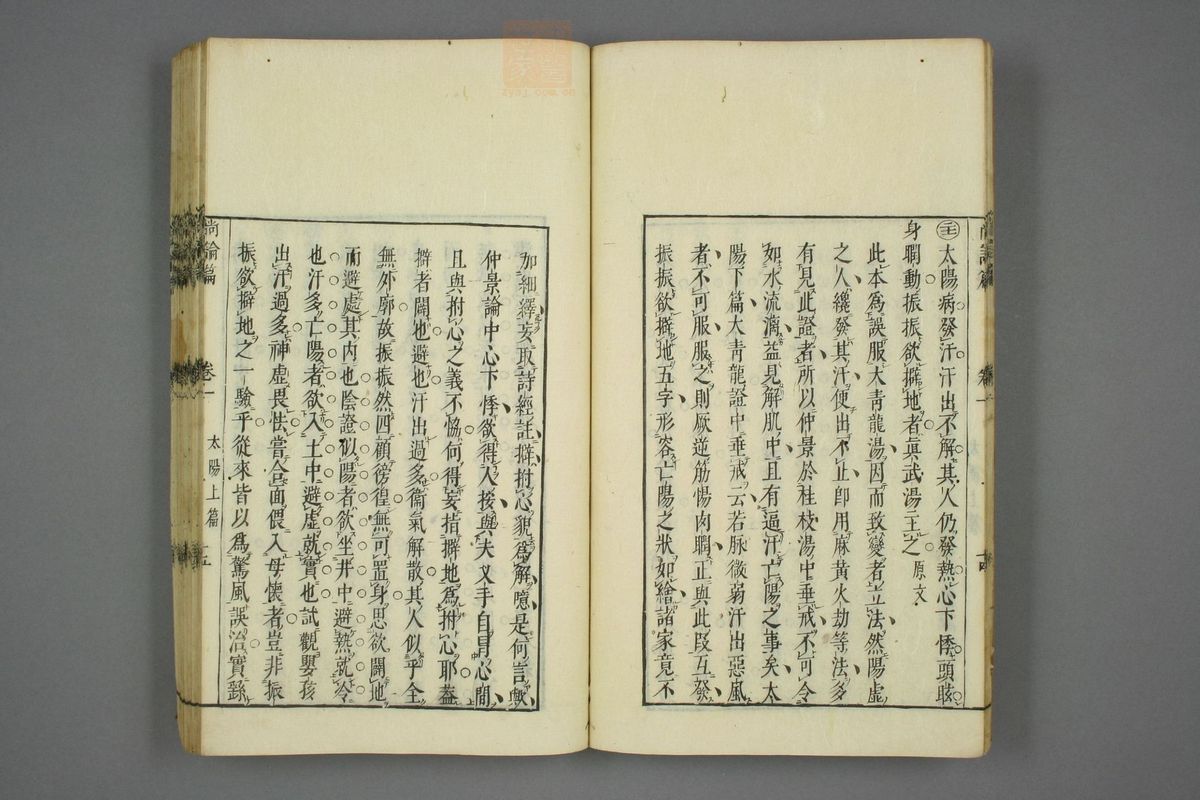 太陽病發汗汗出不解其人仍發熱心下悸頭眩
身瞤動振振欲擗地者眞武湯主之 原文
此本爲誤服大青龍湯因而致變者立法然陽虛
之人纔發其汗便出不止卽用麻黃火劫等法多
有見此證者所以仲景於桂枝湯中垂戒不可令
如水流漓益見解肌中且有逼汗亡陽之事矣太
陽下篇大青龍證中垂戒云若脉微弱汗出惡風
者不可服服之則厥逆筋惕肉瞤正與此段互發
振振欲擗地五字形容亡陽之狀如繪諸家竟不
加細繹妄取詩經註擗拊心貌爲解噫是何言歟
仲景論中心下悸欲得入按與夫叉手自冒心間
且與拊心之義不恊何得妄指擗地爲拊心耶蓋
擗者闢也避也汗出過多衞氣解散其人似乎全
無外廓故振振然四顧徬徨無可置身思欲闢地
而避處其内也陰證似陽者欲坐井中避熱就冷
也汗多亡陽者欲入土中避虛就實也試觀嬰孩
出汗過多神虛畏怯嘗合面偎入母懷者豈非振
振欲擗地之一驗乎從來皆以爲驚風誤治實繇
尚論篇 卷一 太陽上篇 十五